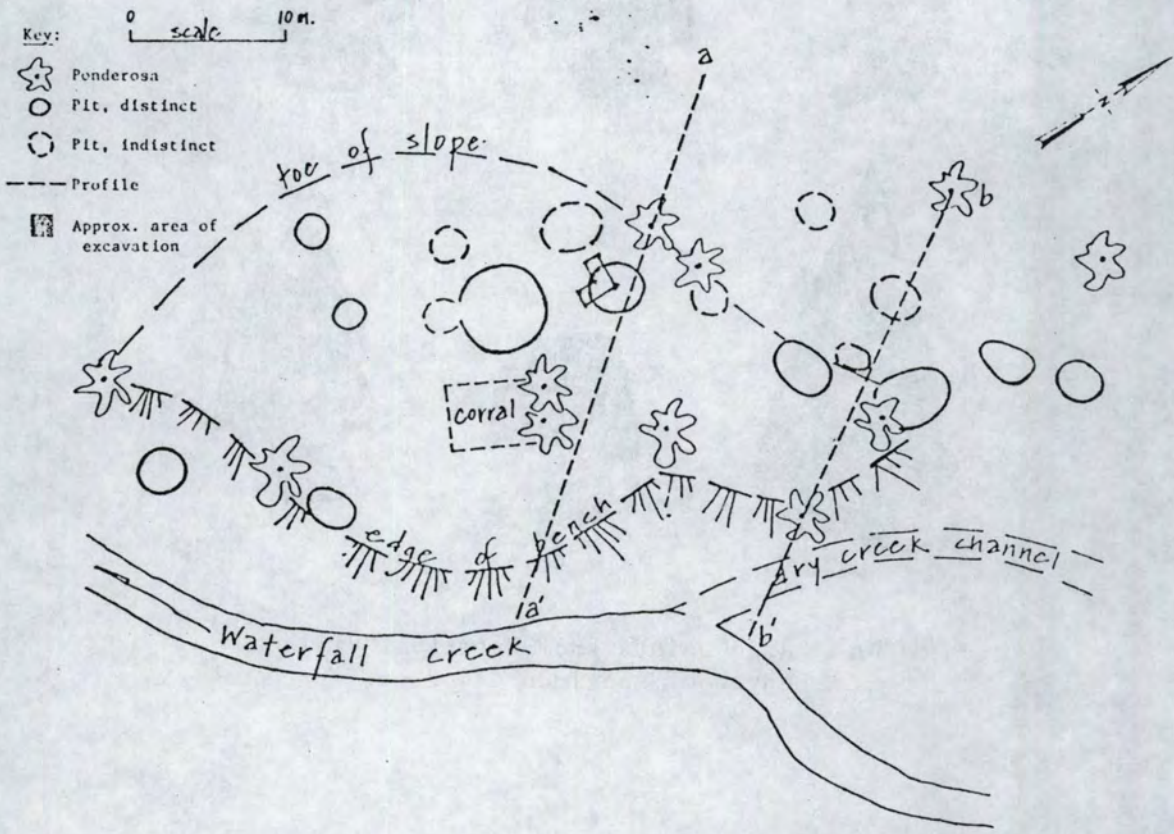 Key:
0 10 m.
scale
Ponderosa
Pit, distinct
Pit, indistinct
Profile
Approx. area of
excavation
a
N
toe of slope
b
corral
edge of bench
dry creek channel
a'
b'
Waterfall creek